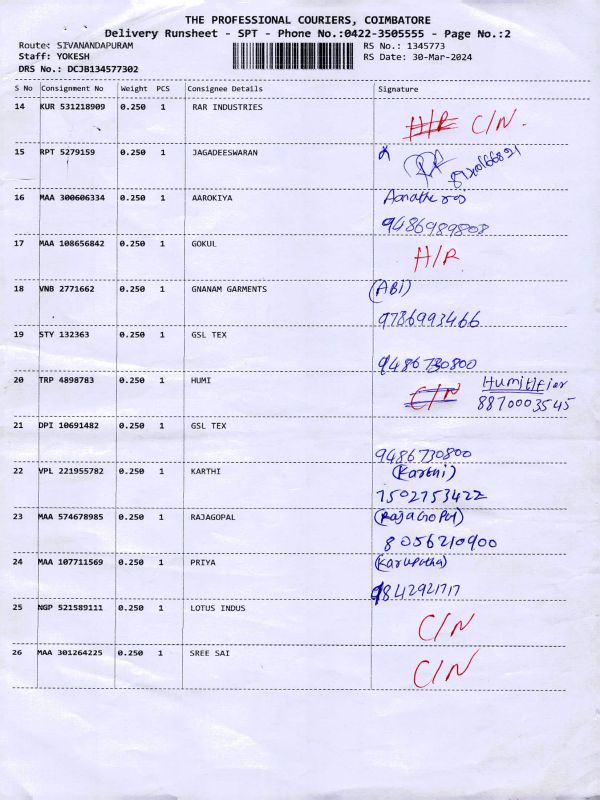 THE PROFESSIONAL COURIERS, COIMBATORE
Delivery Runsheet - SPT - Phone No.:0422-3505555 - Page No.:2
Route: SIVANANDAPURAM RS No.: 1345773
Staff: YOKESH RS Date: 30-Mar-2024
DRS No.: DCJB134577302
S No Consignment No Weight PCS Consignee Details Signature
14 KUR 531218909 0.250 1 RAR INDUSTRIES H/R C/N.
15 RPT 5279159 0.250 1 JAGADEESWARAN
16 MAA 300606334 0.250 1 AAROKIYA
9486989808
17 MAA 108656842 0.250 1 GOKUL H/R
18 VNB 2771662 0.250 1 GNANAM GARMENTS (ABI)
9786993466
19 STY 132363 0.250 1 GSL TEX
9486730800
20 TRP 4898783 0.250 1 HUMI C/N Humitifier
8870003545
21 DPI 10691482 0.250 1 GSL TEX
9486730800
22 VPL 221955782 0.250 1 KARTHI (Karthi)
7502753422
23 MAA 574678985 0.250 1 RAJAGOPAL (RajaGoPal)
8056210900
24 MAA 107711569 0.250 1 PRIYA
9842921717
25 NGP 521589111 0.250 1 LOTUS INDUS C/N
26 MAA 301264225 0.250 1 SREE SAI C/N